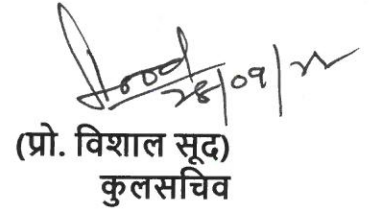 Sood
28/09/22
(प्रो. विशाल सूद)
कुलसचिव